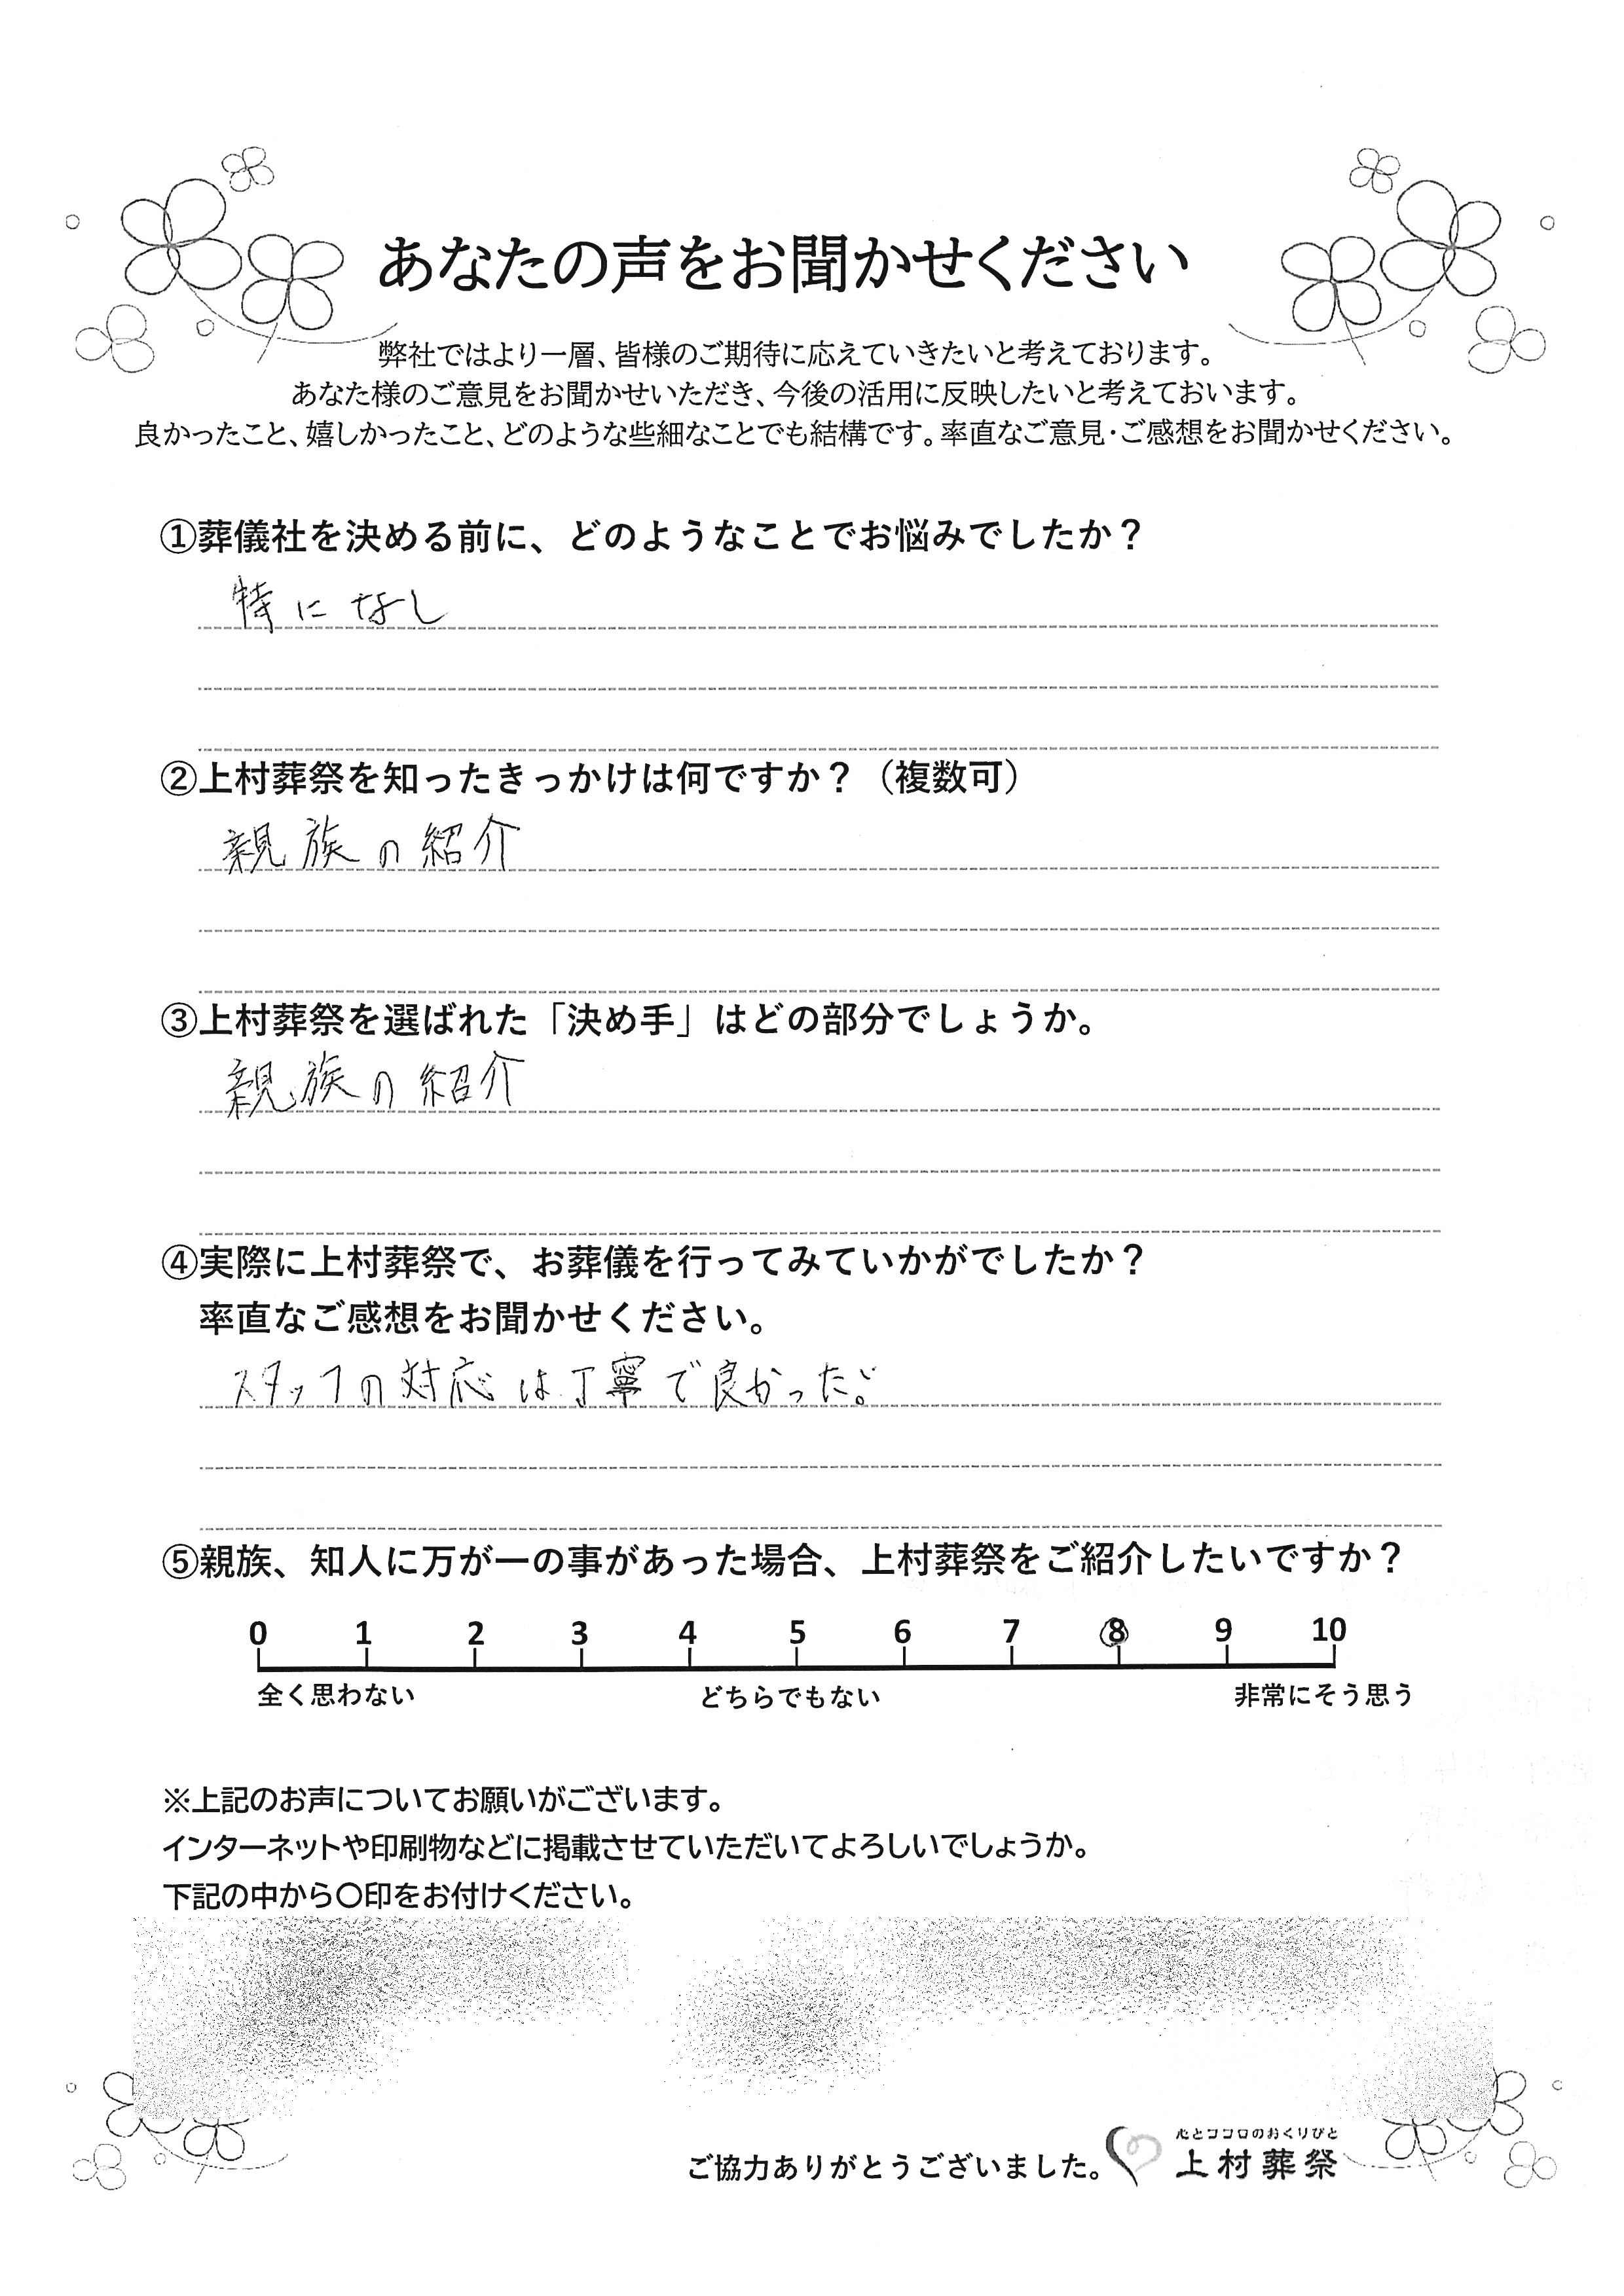 あなたの声をお聞かせください
弊社ではより一層、皆様のご期待に応えていきたいと考えております。
あなた様のご意見をお聞かせいただき、今後の活用に反映したいと考えておいます。
良かったこと、嬉しかったこと、どのような些細なことでも結構です。率直なご意見・ご感想をお聞かせください。
①葬儀社を決める前に、どのようなことでお悩みでしたか？
特になし
②上村葬祭を知ったきっかけは何ですか？（複数可）
親族の紹介
③上村葬祭を選ばれた「決め手」はどの部分でしょうか。
親族の紹介
④実際に上村葬祭で、お葬儀を行ってみていかがでしたか？
率直なご感想をお聞かせください。
スタッフの対応は丁寧で良かった。
⑤親族、知人に万が一の事があった場合、上村葬祭をご紹介したいですか？
0 1 2 3 4 5 6 7 8 9 10
全く思わない どちらでもない 非常にそう思う
※上記のお声についてお願いがございます。
インターネットや印刷物などに掲載させていただいてよろしいでしょうか。
下記の中から〇印をお付けください。
心とココロのおくりびと
ご協力ありがとうございました。 上村葬祭